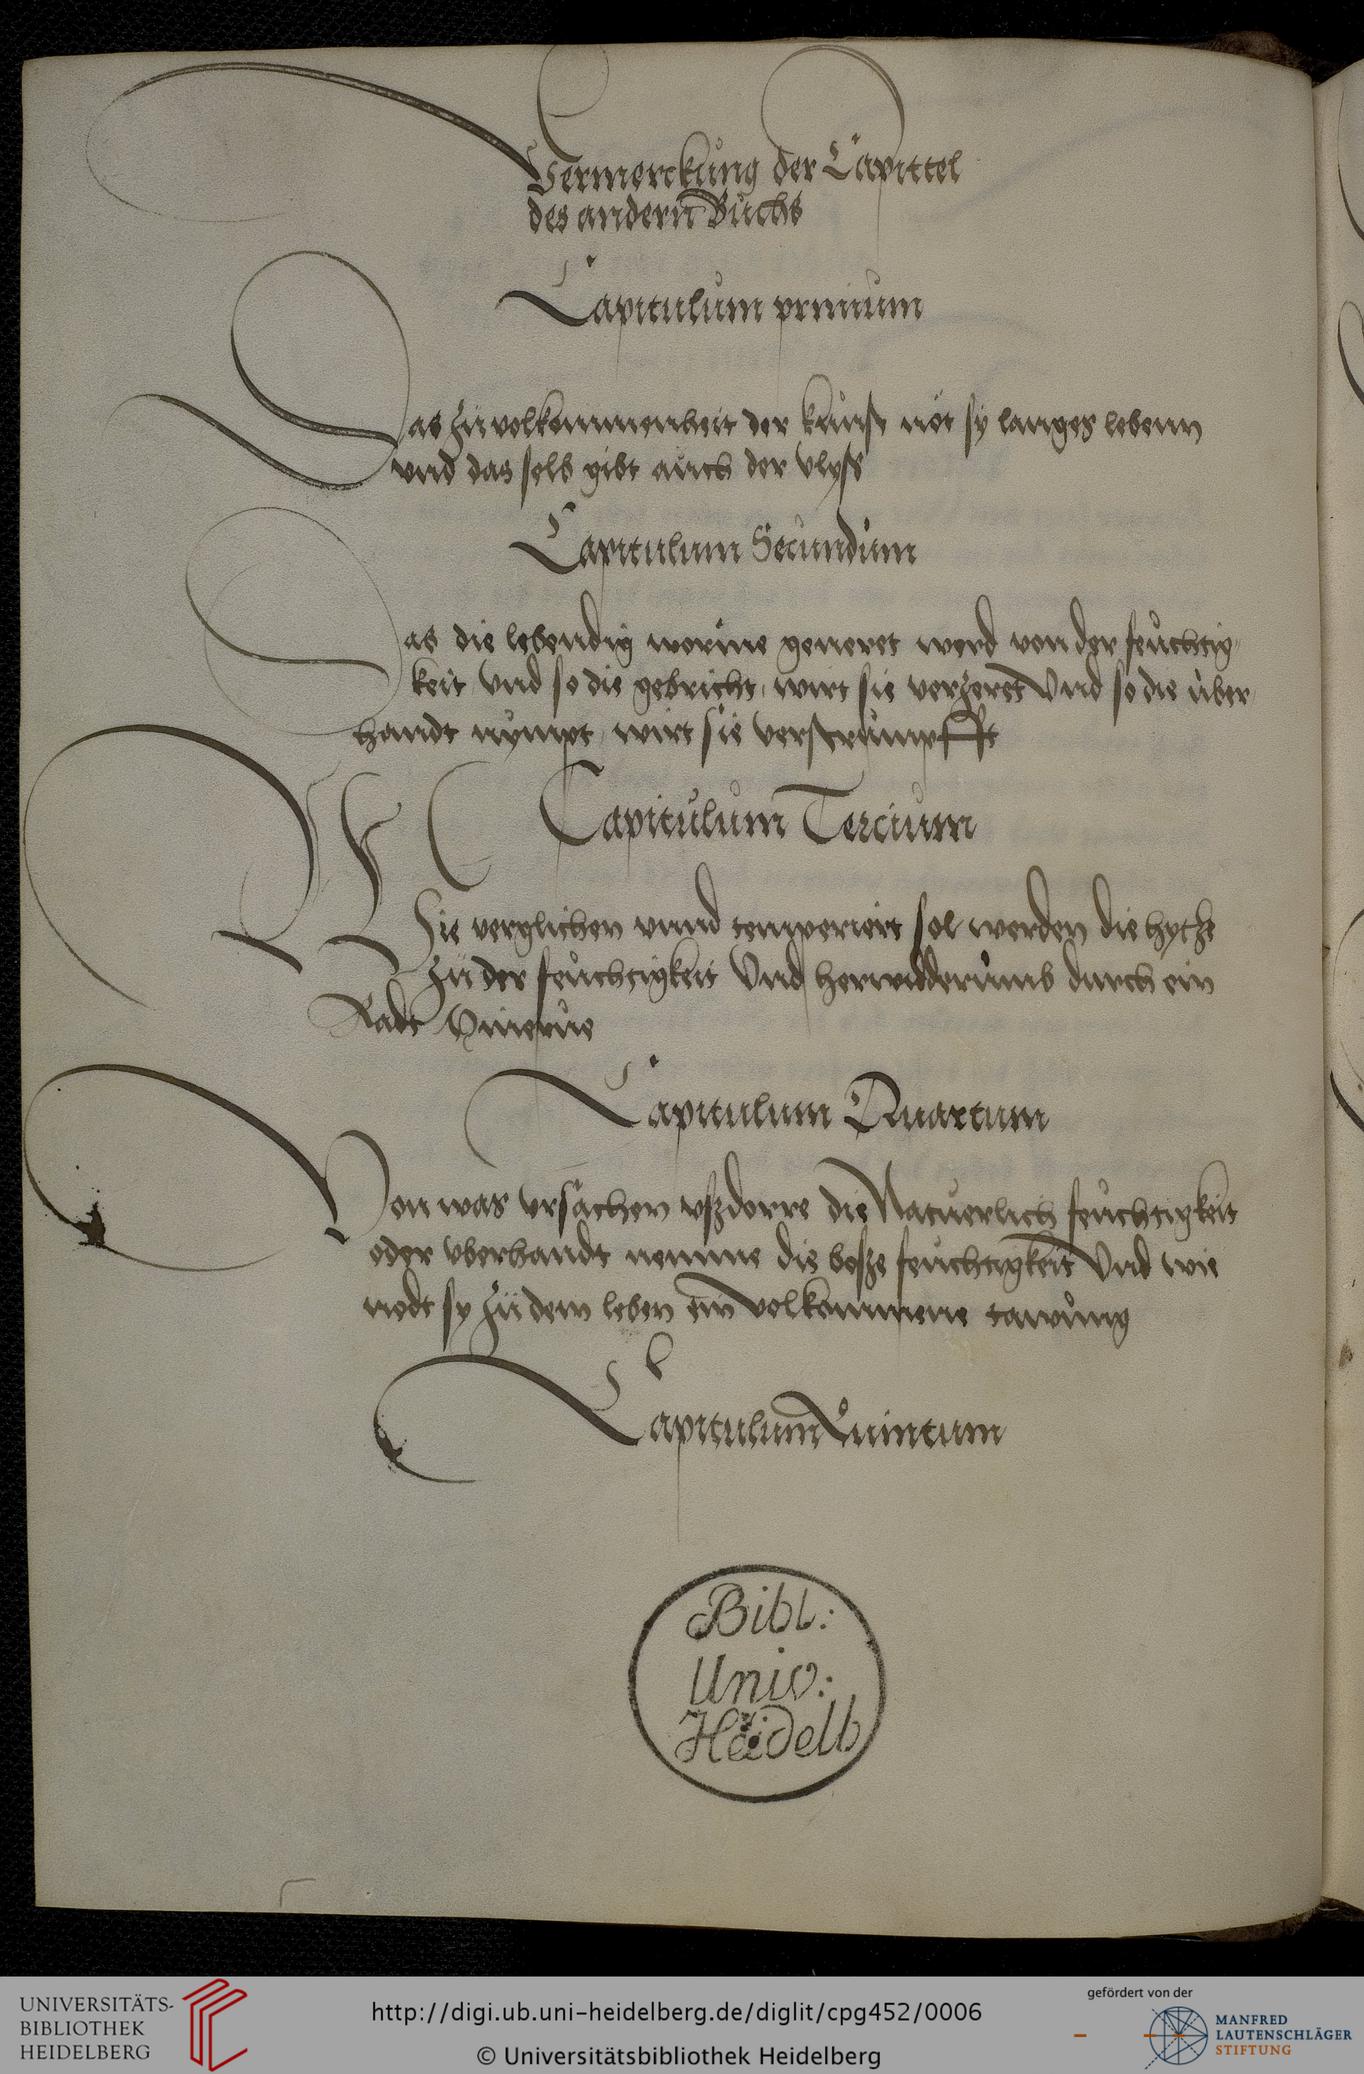 Vermerckung der Capittel
des andern Buchs
Capitulum primum
Das zů volkommenheit der kunst not sy langes lebenn
vnd das selb gibt auch der vlyss
Capitulum Secundum
Das die lebendig worme generet werd von der feuchtig
keit vnd so die gebricht, wirt sie verzeret Vnd so die uber
handt nympt, wirt sie verstrumpfft
Capitulum Tercium
Wie verglichen vnnd temperiert sol werden die hytze
zů der feuchtigkeit Vnd herwidderumb durch ein
Radt
Capitulum Quartum
Von was vrsachen vszdorre die Natuerlich feuchtigkeit
oder vberhandt nemme die bosze feuchtigkeit Vnd wie
nodt sy zů dem leben ein volkommene
Capitulum Quintum
Bibl:
Univ:
Heidelb
UNIVERSITÄTS-
BIBLIOTHEK
HEIDELBERG
http://digi.ub.uni-heidelberg.de/diglit/cpg452/0006
© Universitätsbibliothek Heidelberg
gefördert von der
MANFRED
LAUTENSCHLÄGER
STIFTUNG